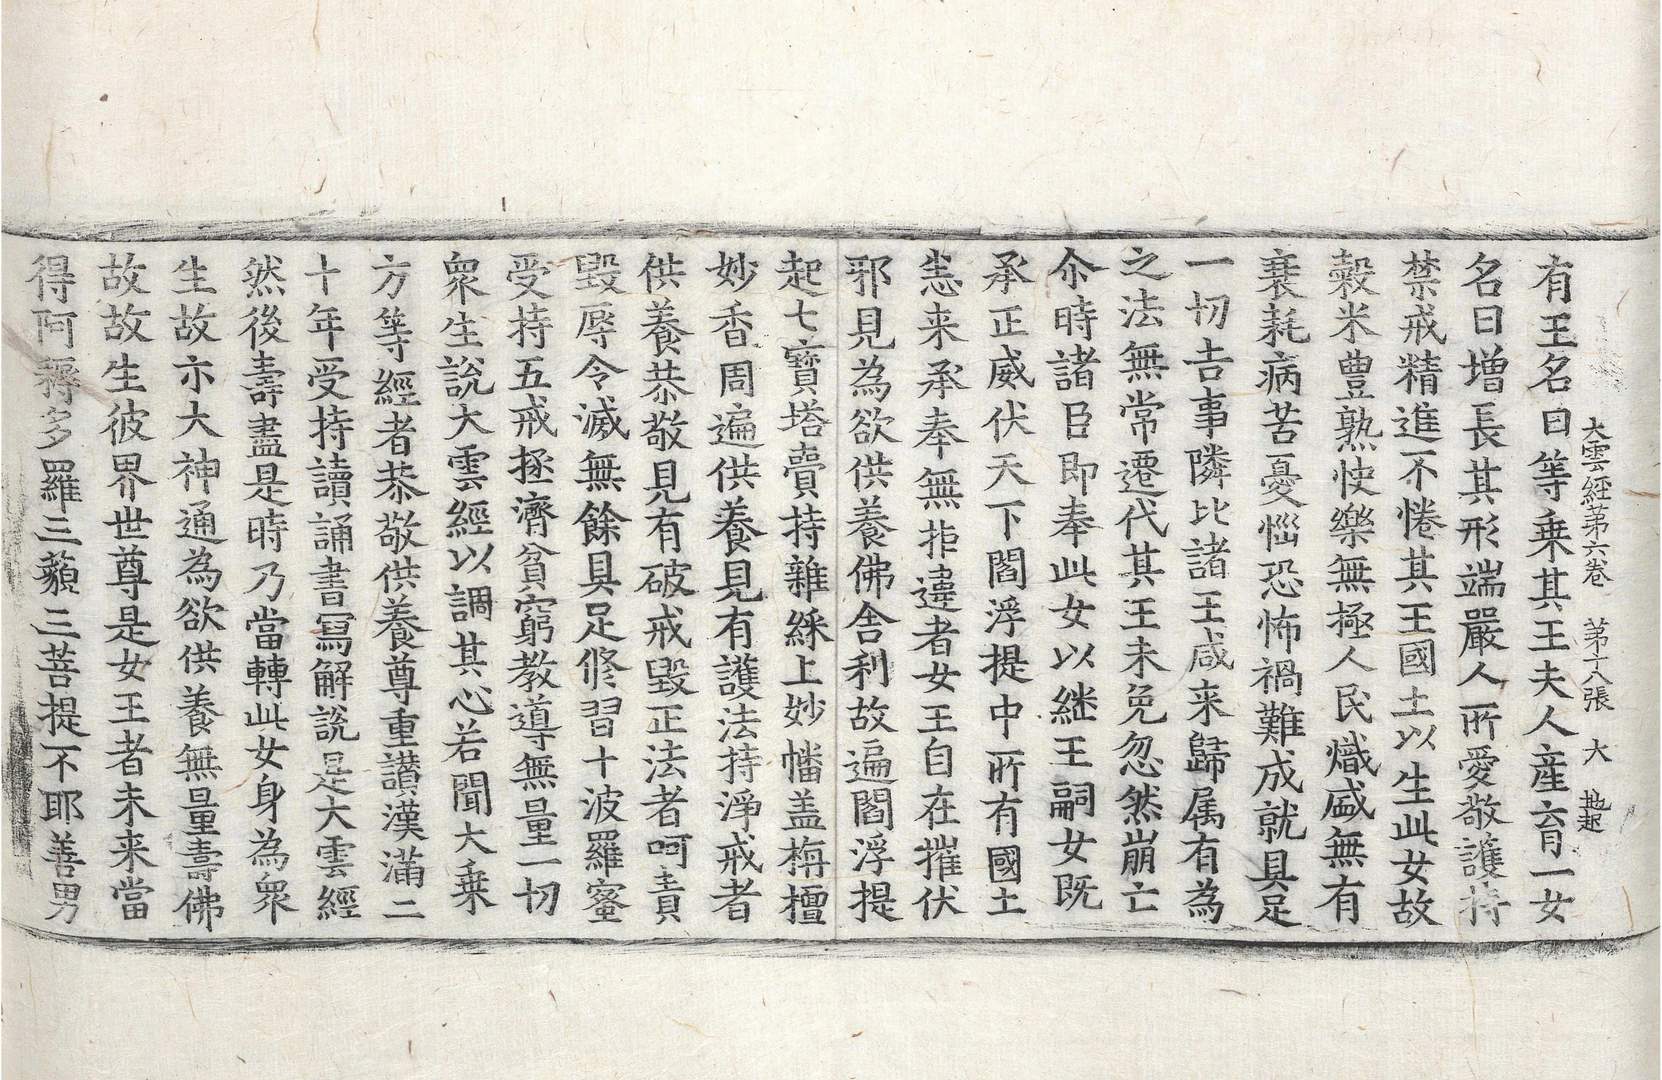 大雲經第六卷 第十八張 大 地起
有王名曰等乗其王夫人産育一女
名曰增長其形端嚴人所愛敬護持
禁戒精進不惓其王國土以生此女故
穀米豊熟快樂無極人民熾盛無有
衰耗病苦憂惱恐怖禍難成就具足
一切吉事隣比諸王咸来歸属有為
之法無常遷代其王未免忽然崩亡
尒時諸臣即奉此女以継王嗣女既
承正威伏天下閻浮提中所有國土
悉来承奉無拒違者女王自在摧伏
邪見為欲供養佛舍利故遍閻浮提
起七寶塔賷持雜綵上妙幡盖栴檀
妙香周遍供養見有護法持淨戒者
供養恭敬見有破戒毀正法者呵責
毀辱令滅無餘具足修習十波羅蜜
受持五戒拯濟貧窮教導無量一切
衆生說大雲經以調其心若聞大乗
方等經者恭敬供養尊重讃漢滿二
十年受持讀誦書寫解說是大雲經
然後壽盡是時乃當轉此女身為衆
生故亦大神通為欲供養無量壽佛
故故生彼界世尊是女王者未来當
得阿耨多羅三藐三菩提不耶善男